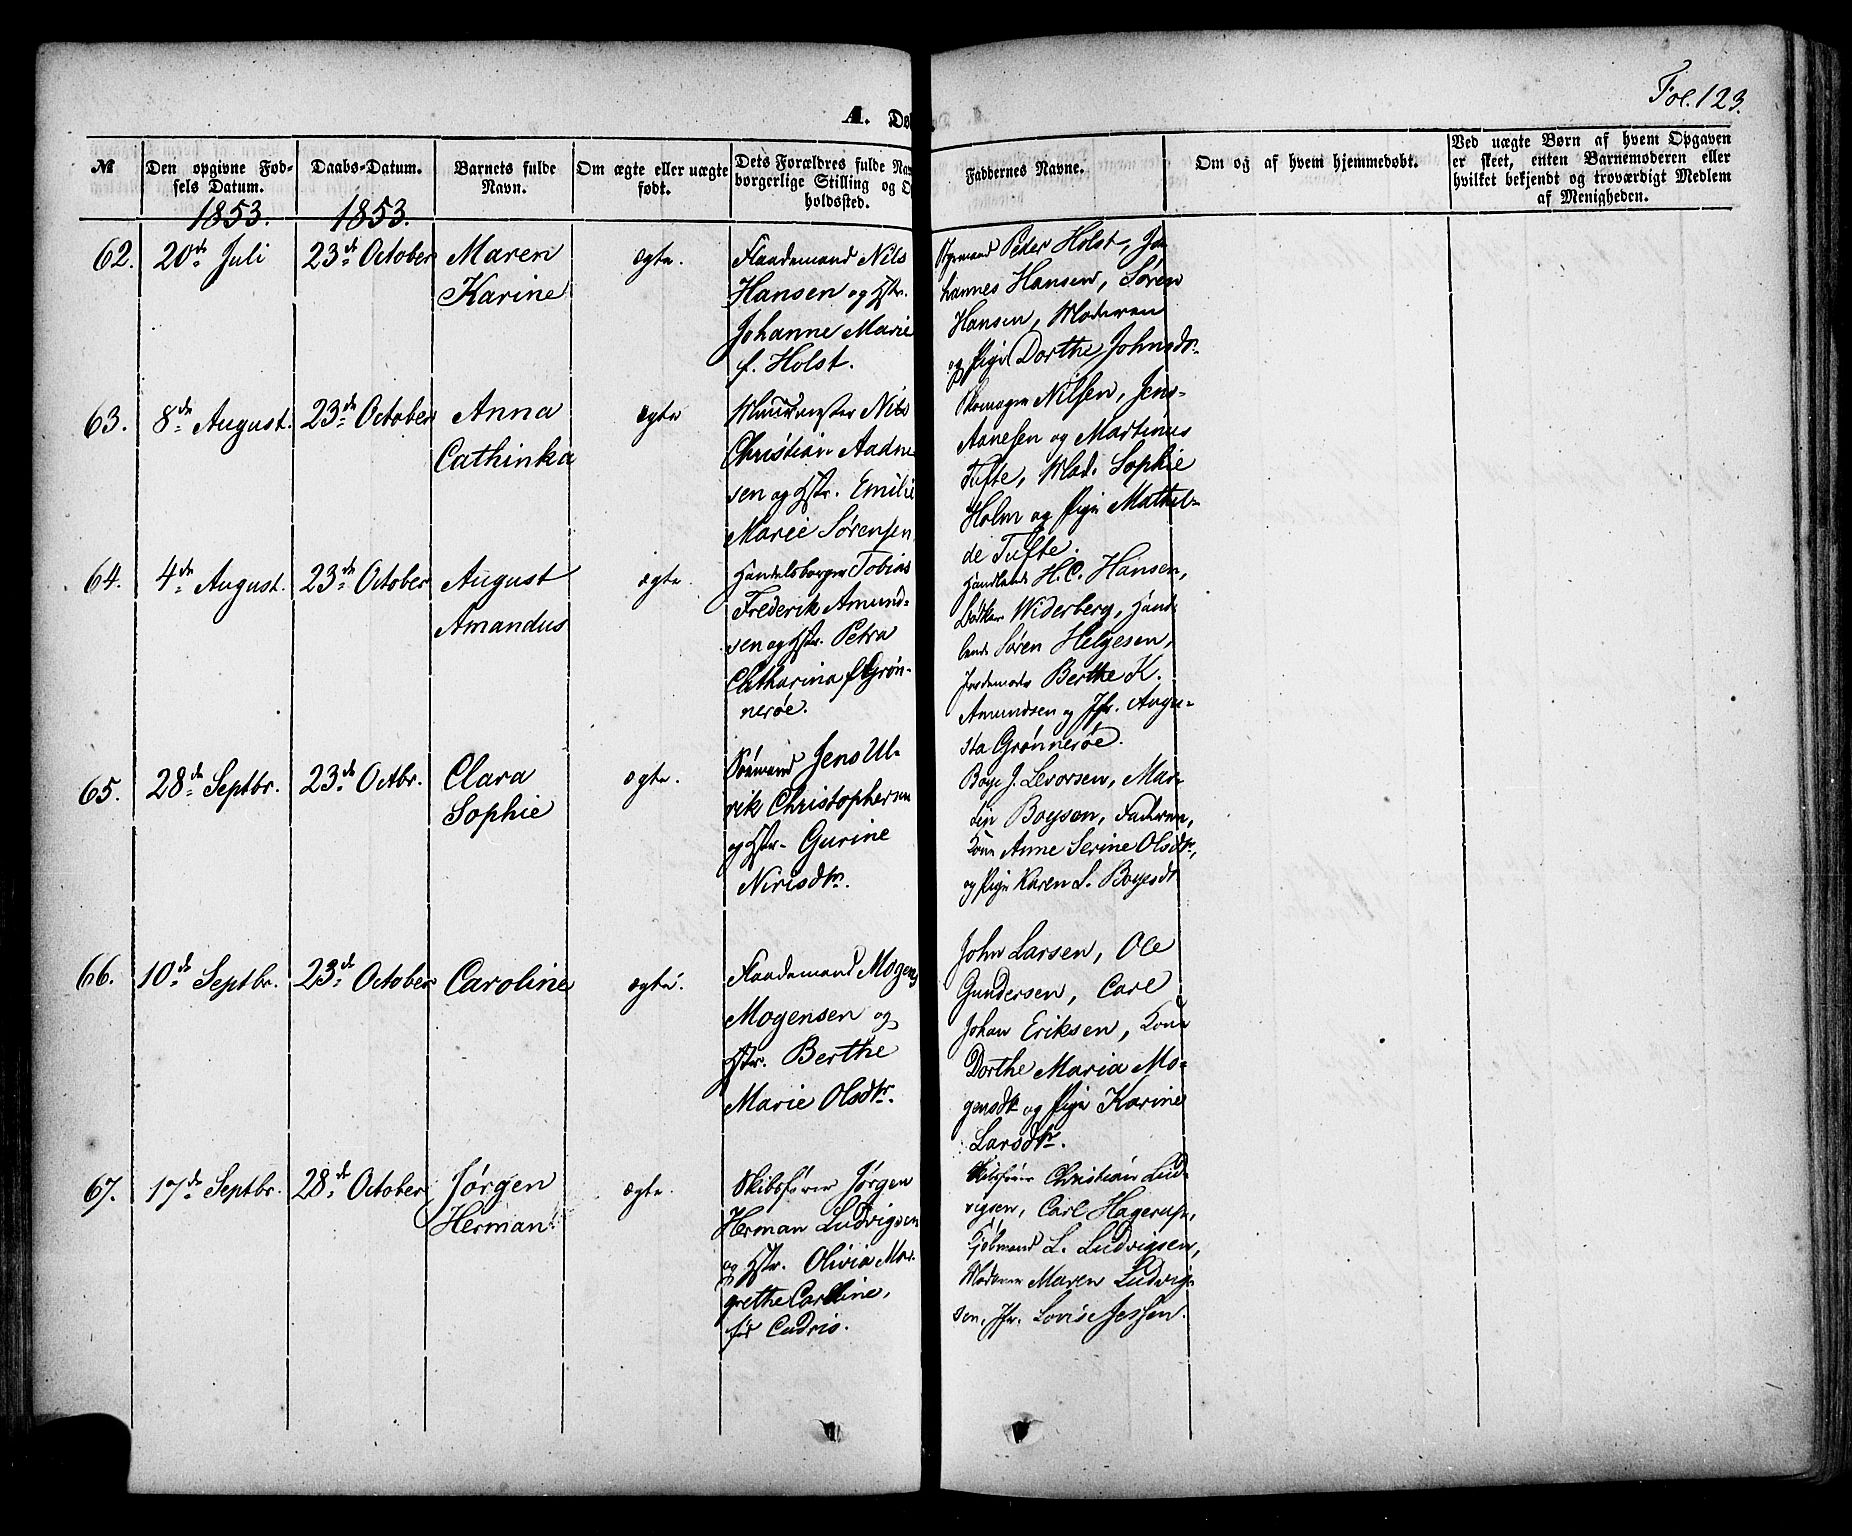 Fol. 123.
A. Dø
№
Den opgivne Fød-
sels Datum.
1853.
Daabs-Datum.
1853.
Barnets fulde
Navn.
Om ægte eller uægte
født.
Dets Forældres fulde Na
borgerlige Stilling og O
holdssted.
Faddernes Navne.
Om og af hvem hjemmedøbt.
Ved uægte Børn af hvem Opgaven
er skeet, enten Barnemoderen eller
hvilket bekjendt og troværdigt Medlem
af Menigheden.
62. 20de Juli
23de October
Maren
Karine
ægte.
Flaademand Nils
Hansen og Hstr.
Johanne Marie
f. Holst.
Styrmand Peder Holst, Jo
hannes Hansen, Søren
Hansen, Moderen
og Pige Dorthe Johnsdtr.
63. 8de August.
23de October
Anna
Cathinka
ægte
Muurmester Nils
Christian Aadne
sen og Hstr. Emilie
Marie Sørensen
Skomager Nilsen, Jens
Aanesen og Martinus
Tufte, Mad. Sophie
Holm og Pige Mathil-
de Tufte.
64. 4de August.
23de October
August
Amandus
ægte.
Handelsborger Tobias
Frederik Amund-
sen og Hstr. Petra
Chatharina f. Grøn-
nerøe.
Handlende H. C. Hansen,
Bødker Widerberg, Hand
lende Søren Helgesen,
Jordemoder Berthe K.
Amundsen og Jfr. Augu-
sta Grønnerøe.
65. 28de Septbr.
23de Octbr.
Clara
Sophie
ægte.
Sømand Jens Ul-
rik Christophersen
og Hstr. Gurine
Nirisdtr.
Boye J. Levorsen, Mar-
tin Boysen, Faderen,
Kone Anne Serine Olsdtr,
og Pige Karen L. Boyesdtr
66. 10de Septbr.
23de October
Caroline
ægte.
Flaademand Mogens
Mogensen og
Hstr. Berthe
Marie Olsdtr.
John Larsen, Ole
Gundersen, Carl
Johan Eriksen, Kone
Dorthe Maria Mo-
gensdtr og Pige Karine
Larsdtr.
67. 17de Septbr.
28de October
Jørgen
Herman
ægte.
Skibsfører Jørgen
Herman Ludvigsen
og Hstr. Olivia Mar-
grethe Caroline,
fød Cudrio.
Skibsfører Christian Lud-
vigsen, Carl Hagerup,
Kjøbmand L. Ludvigsen,
Moderen Maren Ludvig-
sen, Jfr. Lovise Jessen.